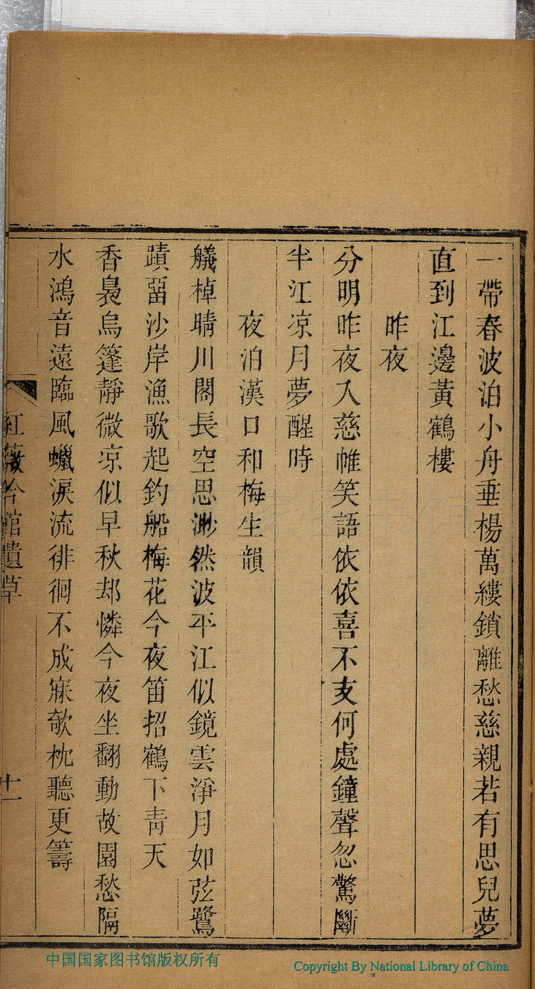 一帶春波泊小舟垂楊萬縷鎖離愁慈親若有思兒夢
直到江邊黃鶴樓
昨夜
分明昨夜入慈帷笑語依依喜不支何處鐘聲忽驚斷
半江凉月夢醒時
夜泊漢口和梅生韻
艤棹晴川閣長空思渺然波平江似鏡雲淨月如弦鷺
蹟畱沙岸漁歌起釣船梅花今夜笛招鶴下靑天
香裊烏篷靜微凉似早秋却憐今夜坐翻動故園愁隔
水鴻音遠臨風蠟淚流徘徊不成寐欹枕聽更籌
紅薇吟館遺草
十一
中国国家图书馆版权所有
Copyright By National Library of China